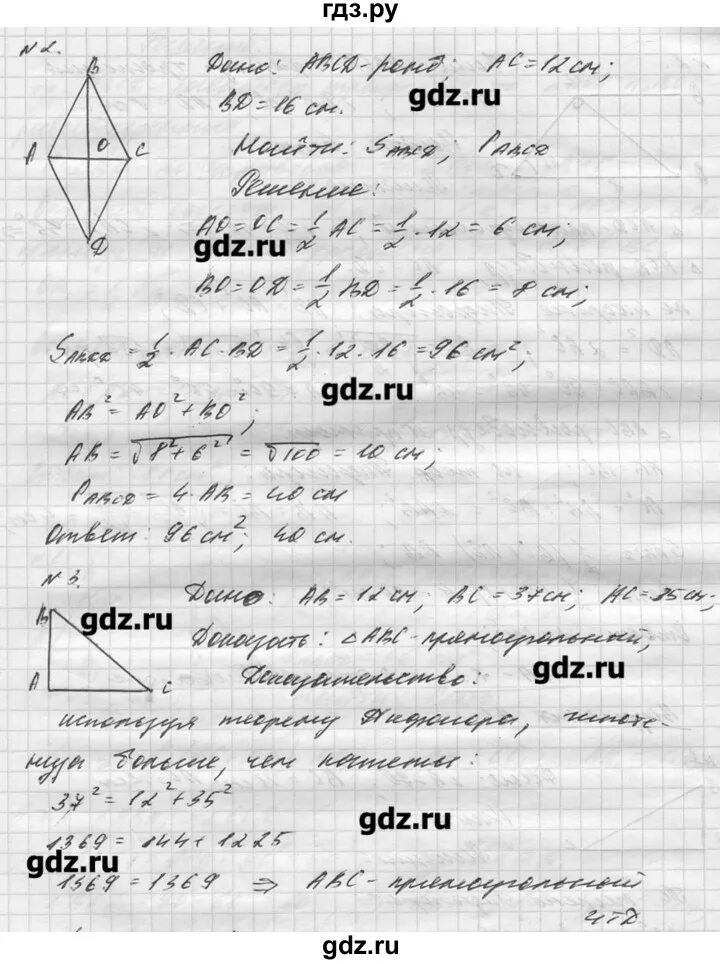 гдз.ру
N 2.
Дано: ABCD-ромб; AC=12 см;
BD=16 см.
gdz.ru
B
A O C
D
Найти: SABCD; PABCD
Решение:
AO=OC=1/2 AC=1/2·12=6 см;
gdz.ru
BO=OD=1/2 BD=1/2·16=8 см;
SABCD=1/2·AC·BD=1/2·12·16=96 см²;
gdz.ru
AB²=AO²+BO²;
AB=√8²+6²=√100=10 см;
PABCD=4·AB=40 см
Ответ: 96 см²; 40 см.
N 3.
Дано: AB=12 см; BC=37 см; AC=35 см;
B
gdz.ru
Доказать: △ABC-прямоугольный,
gdz.ru
A C
Доказательство:
используя теорему Пифагора, гипоте-
нуза больше, чем катеты:
37²=12²+35²
gdz.ru
1369=144+1225
gdz.ru
1369=1369 ⇒ ABC-прямоугольный
чтд
gdz.ru